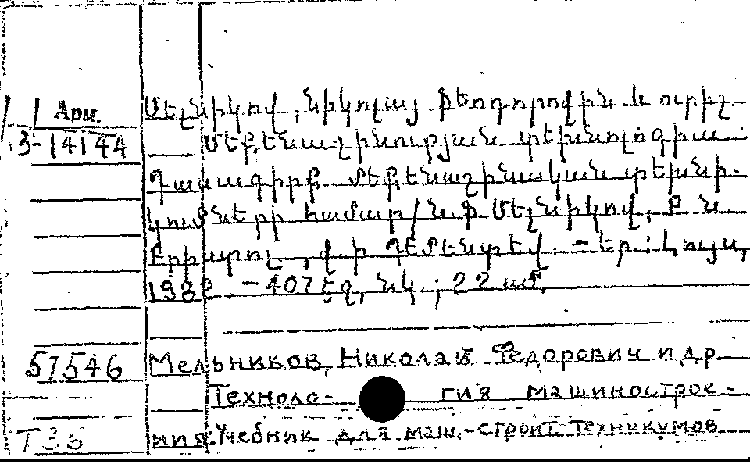 Арм. Մելնիկով, Նիկոլայ Ֆեոդորովիչ և ուրիշ.
3-14144 Մեքենաշինության տեխնոլոգիա.
Դասագիրք մեքենաշինական տեխնի-
կումների համար / Ն. Ֆ. Մելնիկով, Բ. Ն.
Բրիստոլ, Վ. Ի. Դեմենտև. – Եր.: Լույս,
198 – 407 էջ, նկ.; 22 սմ.
57546 Мельников, Николай Федорович и др.
Техноло- гия машинострое-
Т36 ния: Учебник для маш.-строит. техникумов